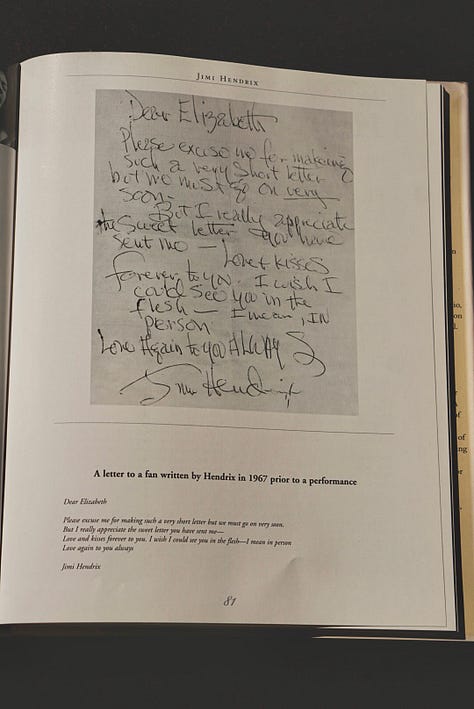 JIMI HENDRIX
Dear Elizabeth
Please excuse me for makeing
such a very short letter
but we must go on very
soon –
But I really appreciate
the sweet letter you have
sent me — Love + kisses
forever, to you. I wish I
could see you in the
flesh — I mean, IN
person
Love Again to you ALWAYS
Jimi Hendrix
A letter to a fan written by Hendrix in 1967 prior to a performance
Dear Elizabeth
Please excuse me for making such a very short letter but we must go on very soon.
But I really appreciate the sweet letter you have sent me—
Love and kisses forever to you. I wish I could see you in the flesh—I mean in person
Love again to you always
Jimi Hendrix
81